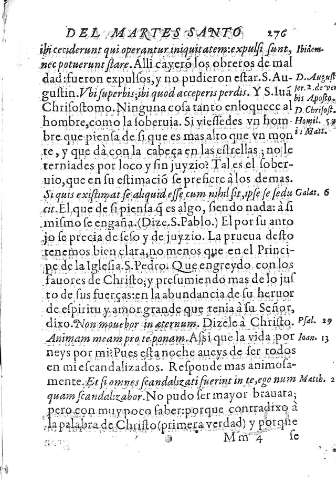 DEL MARTES SANTO 276
ibi ceciderunt qui operantur iniquitatem: expulsi sunt,
nec potuerunt stare. Alli cayerõ los obreros de mal
dad: fueron expulsos, y no pudieron estar. S. Au-
gustin. Vbi superbis, ibi quod acceperis perdis. Y S. Iuã
Chrisostomo. Ninguna cosa tanto enloquece al
hombre, como la soberuia. Si viessedes vn hom-
bre que piensa de si que es mas alto que vn mon-
te, y que dà con la cabeça en las estrellas, no le
terniades por loco y sin juyzio? Tal es el sober-
uio, que en su estimaciõ se prefiere à los demas.
Si quis existimat se aliquid esse, cum nihil sit, ipse se sedu
cit. El que de si piensa q̃ es algo, siendo nada: à si
mismo se engaña. (Dize. S. Pablo.) El por su anto
jo se precia de seso y de juyzio. La prueua desto
tenemos bien clara, no menos que en el Princi-
pe de la Iglesia. S. Pedro. Que engreydo con los
fauores de Christo, y presumiendo mas de lo jus
to de sus fuerças: en la abundancia de su heruor
de espiritu y amor grande que tenia à su Señor,
dixo. Non mouebor in æternum. Dizele à Christo.
Animam meam pro te ponam. Assi que la vida por
neys por mi? Pues esta noche aueys de ser todos
en mi escandalizados. Responde mas animosa-
mente. Et si omnes scandalizati fuerint in te, ego num
quam scandalizabor. No pudo ser mayor brauata;
pero con muy poco saber: porque contradixo à
la palabra de Christo (primera verdad) y porque
Mm 4 se
Ibidem.
D. August
ser. 2. de ver
bis Aposto.
D. Chrisost.
Homil.
Galat. 6
Psal. 29
Ioan. 13
Matth. 2